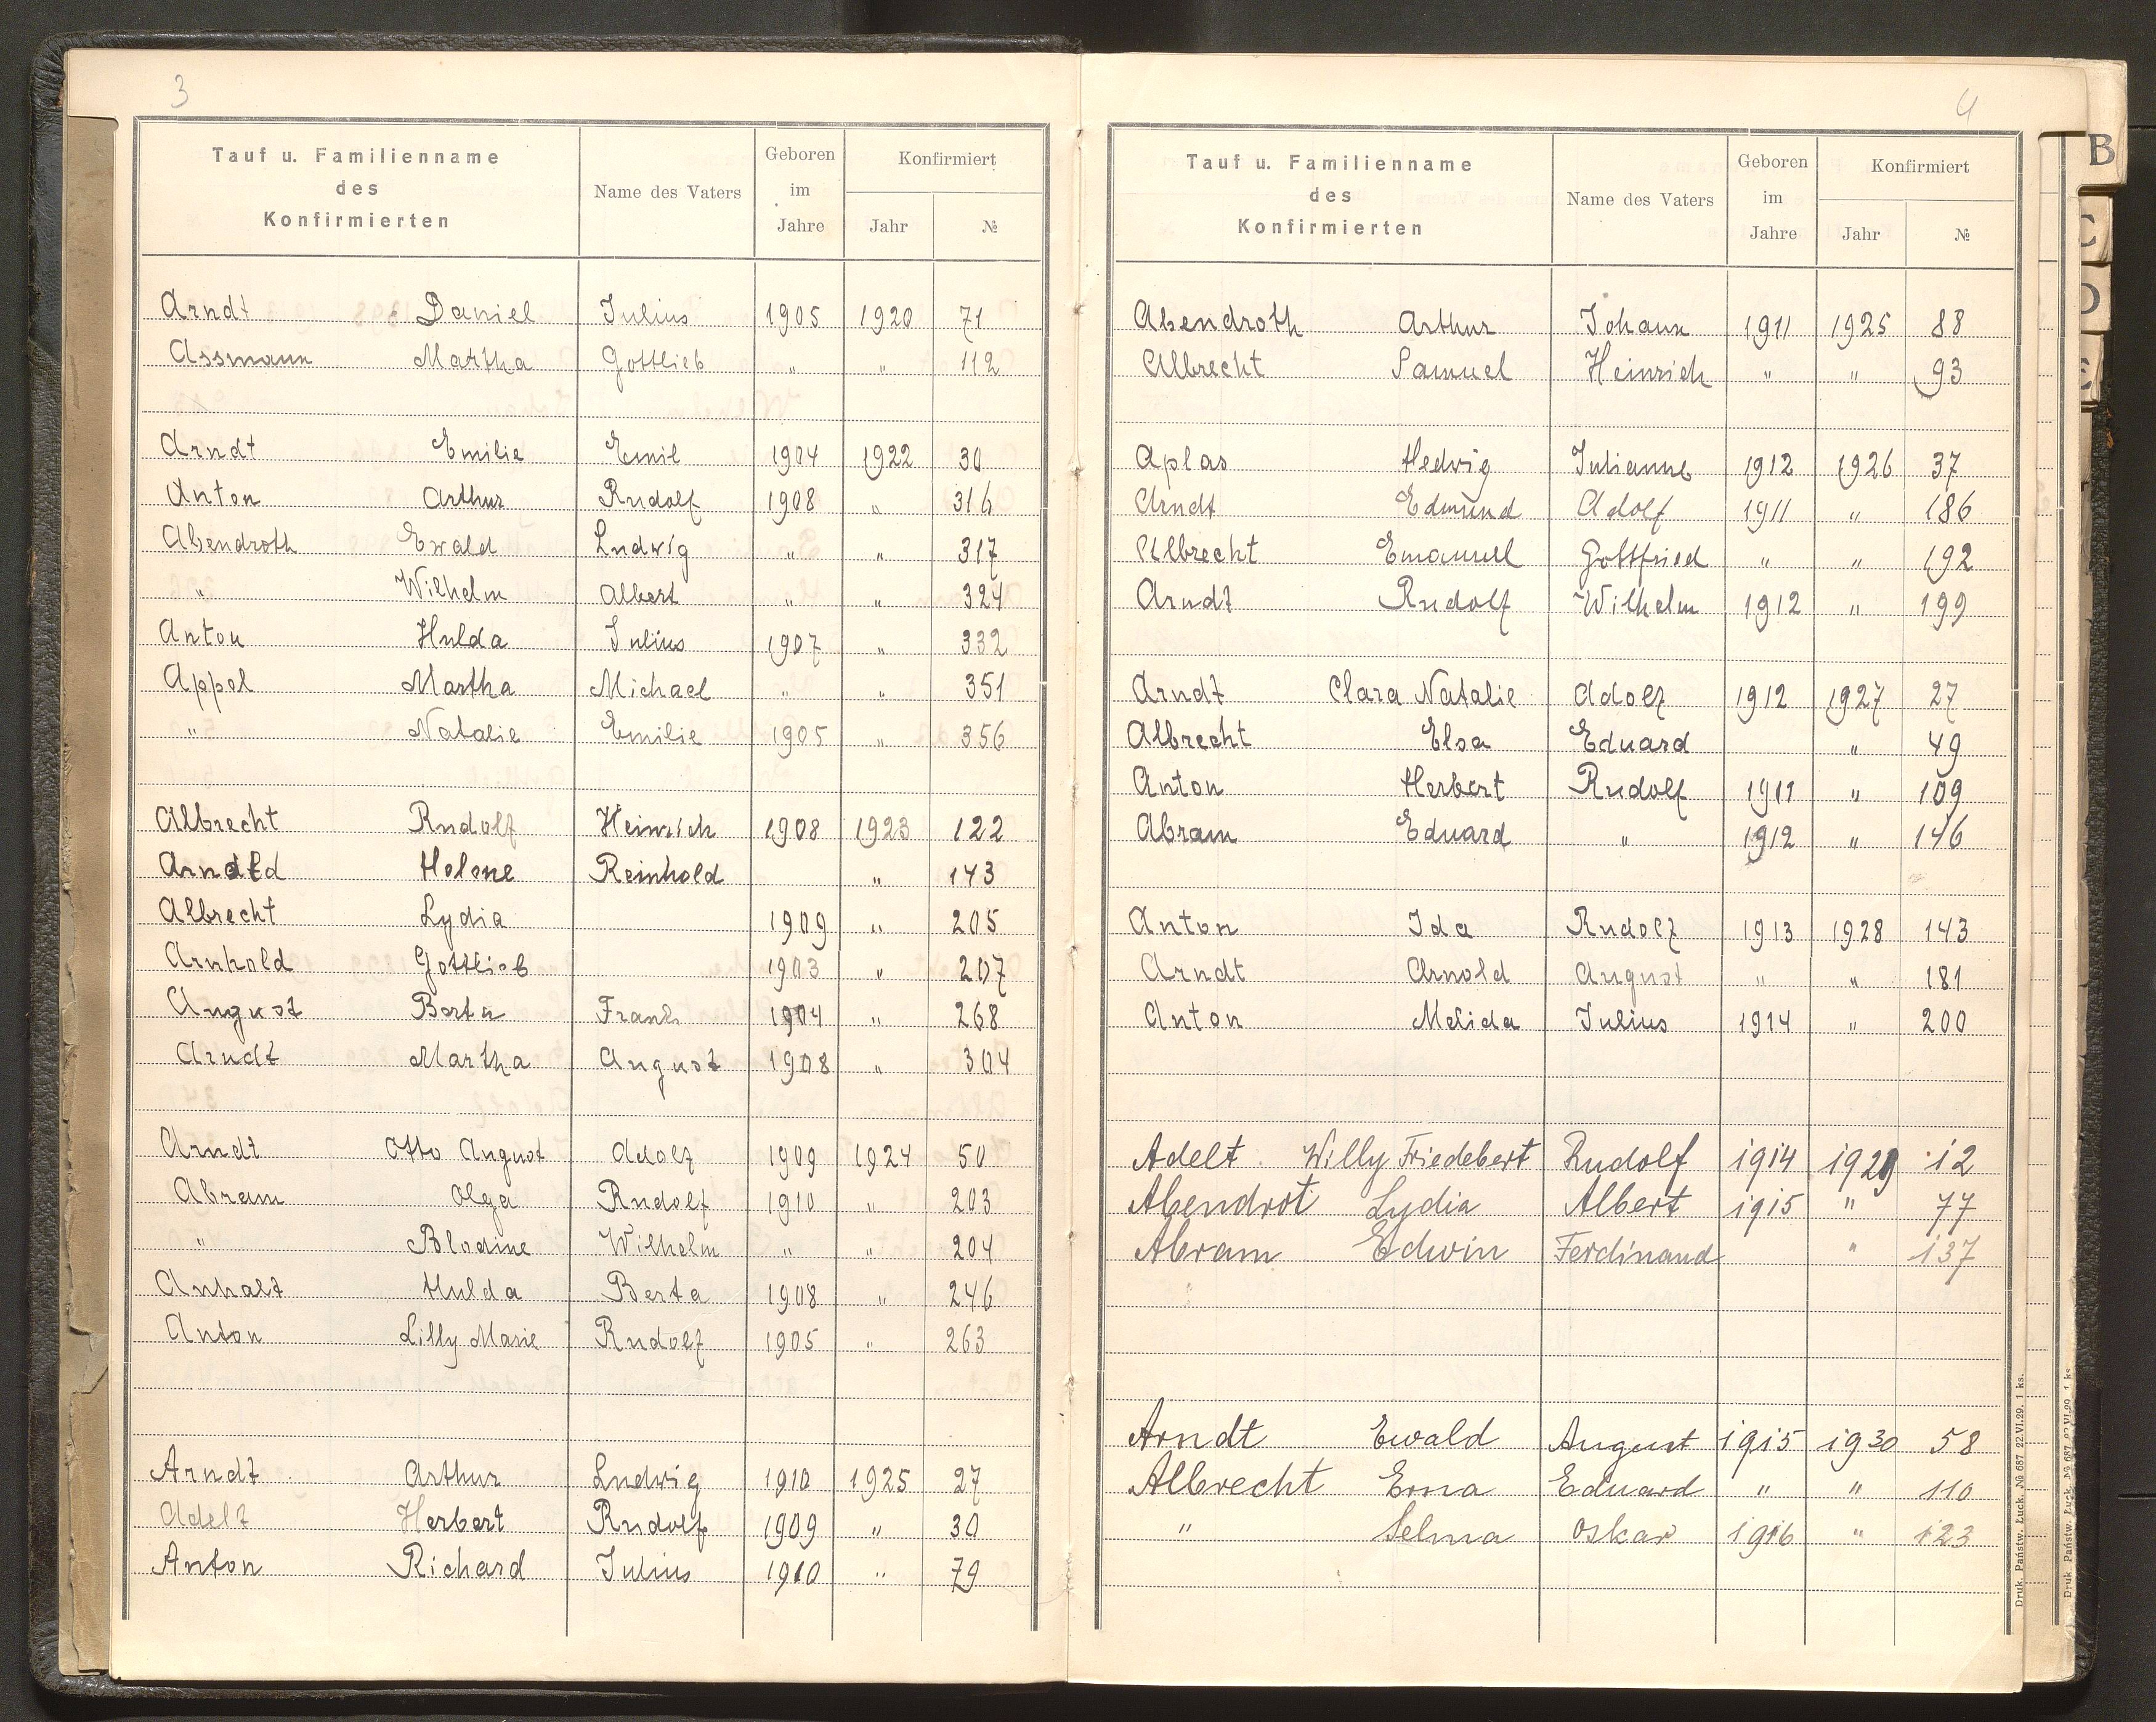 3
Tauf u. Familienname des Konfirmierten Name des Vaters Geboren im Jahre Konfirmiert Jahr №
Arndt Daniel Julius 1905 1920 71
Assmann Martha Gottlieb " " 112
Arndt Emilie Emil 1904 1922 30
Anton Arthur Rudolf 1908 " 316
Abendroth Ewald Ludwig " " 317
" Wilhelm Albert " " 324
Anton Hulda Julius 1907 " 332
Appel Martha Michael " " 351
" Natalie Emilie 1905 " 356
Albrecht Rudolf Heinrich 1908 1923 122
Helene Reinhold " 143
Albrecht Lydia 1909 " 205
Arnhold Gottlieb 1903 " 207
August Berta Frank 1904 " 268
Arndt Martha August 1908 " 304
Arndt Otto August Adolf 1909 1924 50
Abram Olga Rudolf 1910 " 203
" Wilhelm " " 204
Anhalt Hulda Berta 1908 " 246
Anton Lilly Marie Rudolf 1905 " 263
Arndt Arthur Ludwig 1910 1925 27
Adelt Herbert Rudolf 1909 " 30
Anton Richard Julius 1910 " 79
4
Tauf u. Familienname des Konfirmierten Name des Vaters Geboren im Jahre Konfirmiert Jahr №
Abendroth Arthur Johann 1911 1925 88
Albrecht Samuel Heinrich " " 93
Aplas Hedwig Julianne 1912 1926 37
Arndt Edmund Adolf 1911 " 186
Albrecht Emanuel Gottfried " " 192
Arndt Rudolf Wilhelm 1912 " 199
Arndt Clara Natalie Adolf 1912 1927 27
Albrecht Elsa Eduard " 49
Anton Herbert Rudolf 1911 " 109
Abram Eduard " 1912 " 146
Anton Ida Rudolf 1913 1928 143
Arndt Arnold August " " 181
Anton Melida Julius 1914 " 200
Adelt Willy Friedebert Rudolf 1914 1929 12
Abendrot Lydia Albert 1915 " 77
Abram Edwin Ferdinand " 137
Arndt Ewald August 1915 1930 58
Albrecht Erna Eduard " " 110
" Selma Oskar 1916 " 123
Druk. Państw. Łuck. № 687 22.VI.29. 1 ks.
Druk. Państw. Łuck. № 687 22.VI.29 1 ks.
B
C
D
E